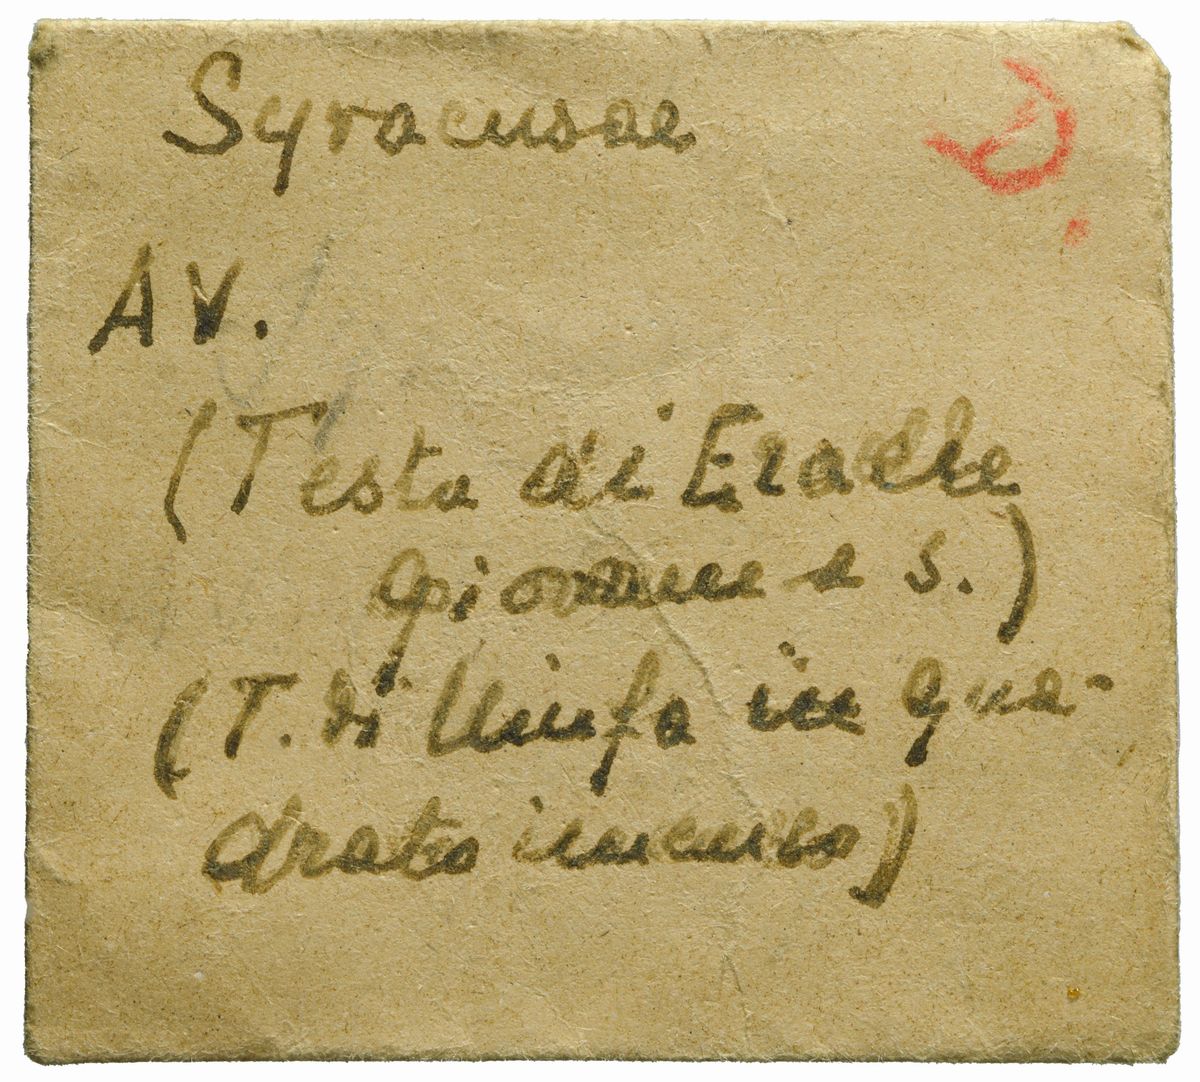 Syracusae
AV.
(Testa di Eracle
giovane a s.)
(T. di Ninfa in qua-
drato incuso)